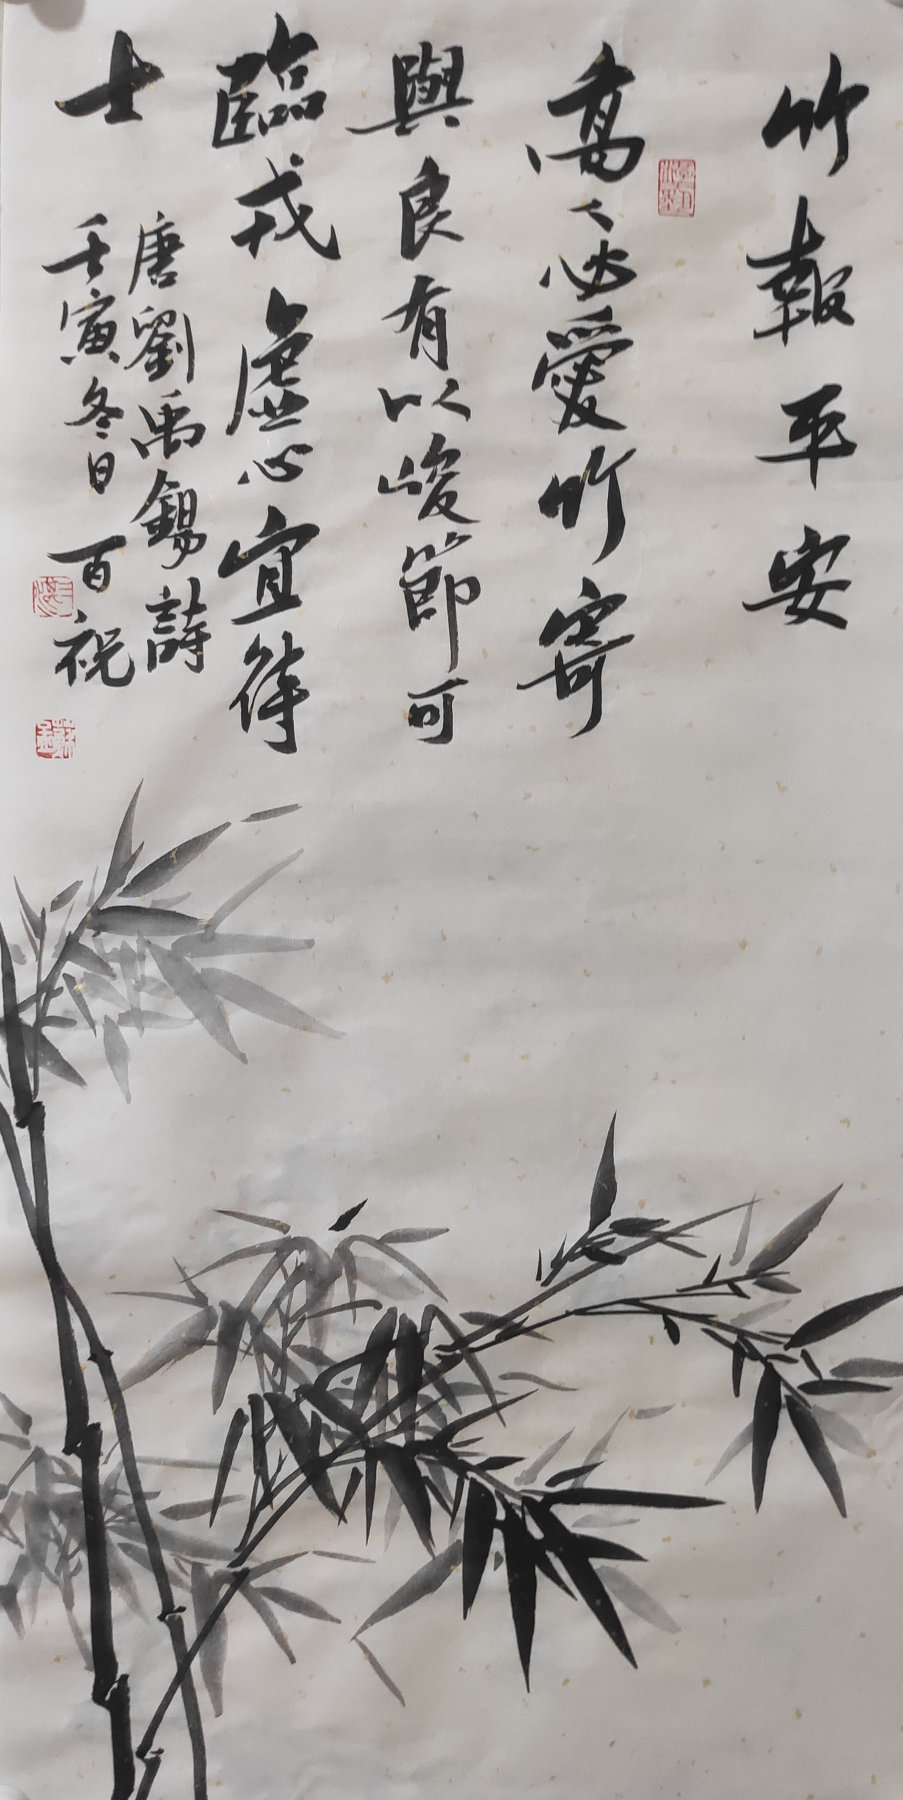 竹報平安
高人必愛竹寄
興良有以峻節可
臨戎虛心宜待
士
唐劉禹錫詩
壬寅冬日百祝